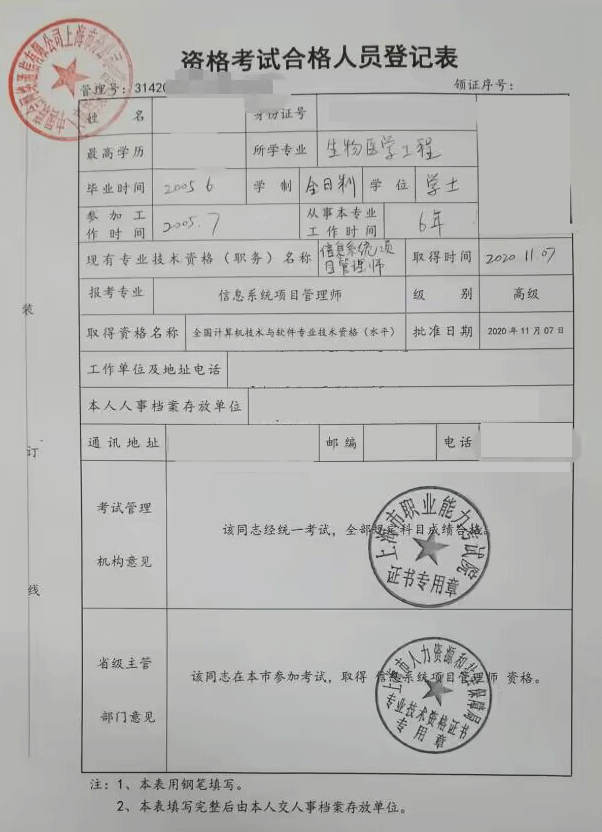 资格考试合格人员登记表
管理号：3142
领证序号：
姓 名
身份证号
最高学历
所学专业 生物医学工程
毕业时间 2005 6 学 制 全日制 学 位 学士
参加工作时间 2005.7 从事本专业工作时间 6年
现有专业技术资格（职务）名称 信息系统项目管理师 取得时间 2020 11.07
报考专业 信息系统项目管理师 级 别 高级
取得资格名称 全国计算机技术与软件专业技术资格（水平） 批准日期 2020年11月07日
工作单位及地址电话
本人人事档案存放单位
通讯地址 邮编 电话
考试管理
机构意见
该同志经统一考试，全部规定科目成绩合格。
上海市职业能力考试院
证书专用章
省级主管
部门意见
该同志在本市参加考试，取得 信息系统项目管理师 资格。
上海市人力资源和社会保障局
专业技术资格证书
专用章
注：1、本表用钢笔填写。
2、本表填写完整后由本人交人事档案存放单位。
装
订
线